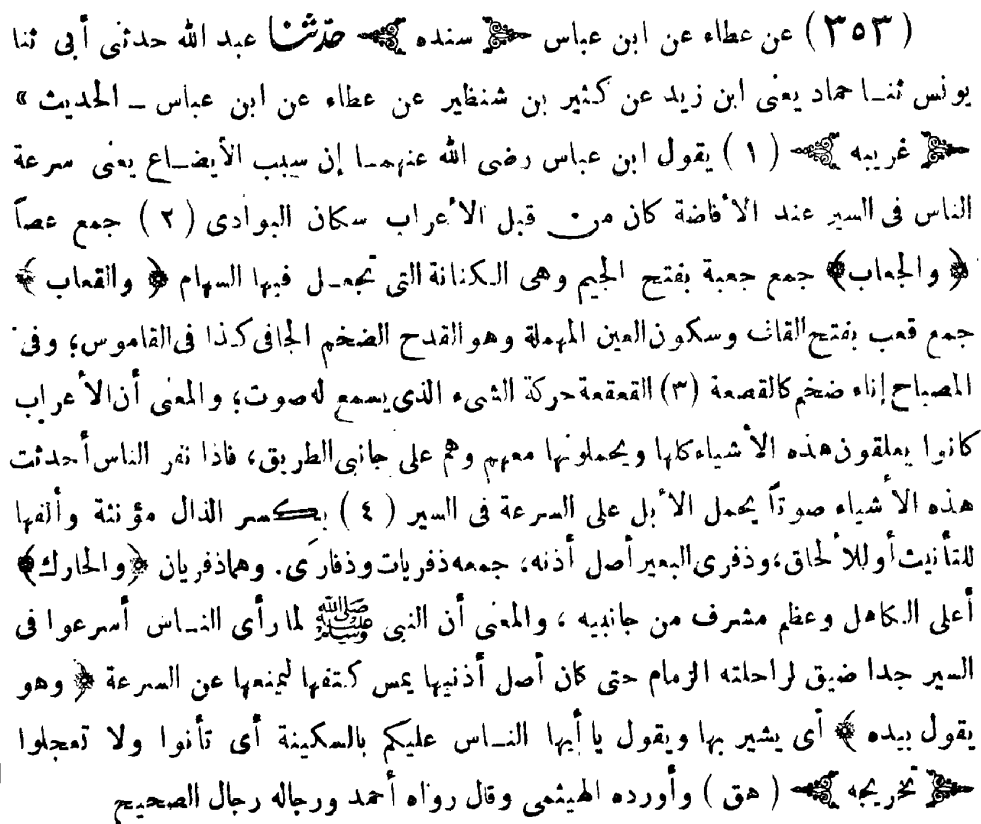 (٣٥٣) عن عطاء عن ابن عباس ﴿ سنده ﴾ حدثنا عبد الله حدثنى أبى ثنا
يونس ثنـا حماد يعنى ابن زيد عن كثير بن شنظير عن عطاء عن ابن عباس ـ الحديث »
﴿ غريبه ﴾ (١) يقول ابن عباس رضى الله عنهمـا إن سبب الأيضـاع يعنى سرعة
الناس فى السير عند الأفاضة كان من قبل الأعراب سكان البوادى (٢) جمع عصاً
﴿ والجعاب ﴾ جمع جعبة بفتح الجيم وهى الكنانة التى تجعـل فيها السهام ﴿ والقعاب ﴾
جمع قعب بفتح القاف وسكون العين المهملة وهو القدح الضخم الجافى كذا فى القاموس؛ وفى
المصباح إناء ضخم كالقصعة (٣) القعقعة حركة الشىء الذى يسمع له صوت؛ والمعنى أن الأعراب
كانوا يعلقون هذه الأشياء كلها ويحملونها معهم وهم على جانبى الطريق، فاذا نفر الناس أحدثت
هذه الأشياء صوتاً يحمل الأبل على السرعة فى السير (٤) بكسر الذال مؤنثة وألفها
للتأنيث أو للألحاق، وذفرى البعير أصل أذنه، جمعه ذفريات وذفارَى. وهما ذفريان ﴿ والحارك ﴾
أعلى الكاهل وعظم مشرف من جانبيه ، والمعنى أن النبى ﷺ لما رأى النـاس أسرعوا فى
السير جدا ضيق لراحلته الزمام حتى كان أصل أذنيها يمس كتفها ليمنعها عن السرعة ﴿ وهو
يقول بيده ﴾ أى يشير بها ويقول يا أيها النـاس عليكم بالسكينة أى تأنوا ولا تعجلوا
﴿ تخريجه ﴾ (هق) وأورده الهيثمى وقال رواه أحمد ورجاله رجال الصحيح